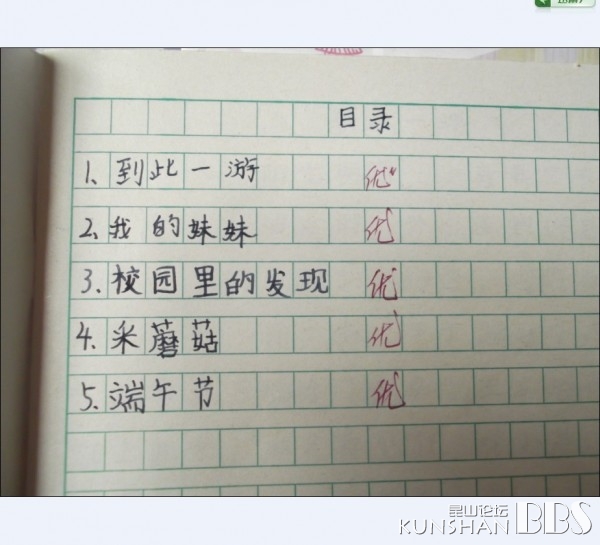 目录
1、到此一游 优
2、我的妹妹 优
3、校园里的发现 优
4、采蘑菇 优
5、端午节 优
昆山论坛
KUNSHAN BBS